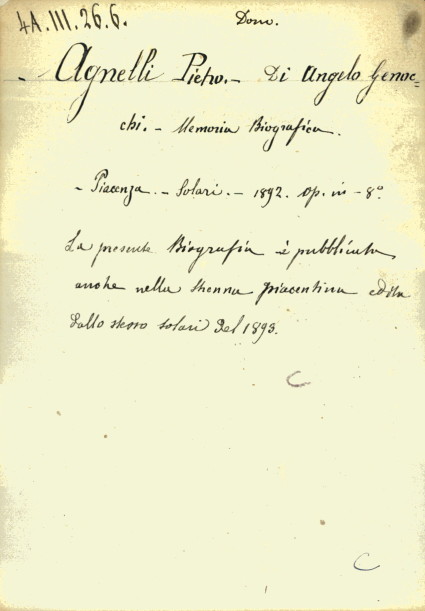 4A.III.26.6. Dom.
- Agnelli Pietro. - Di Angelo Genoc=
chi. - Memoria Biografica.
- Piacenza. - Solari. - 1892. Op. in - 8°
La presente Biografia è pubblicata
anche nella Strenna piacentina edita
dallo stesso Solari del 1893.
C
C